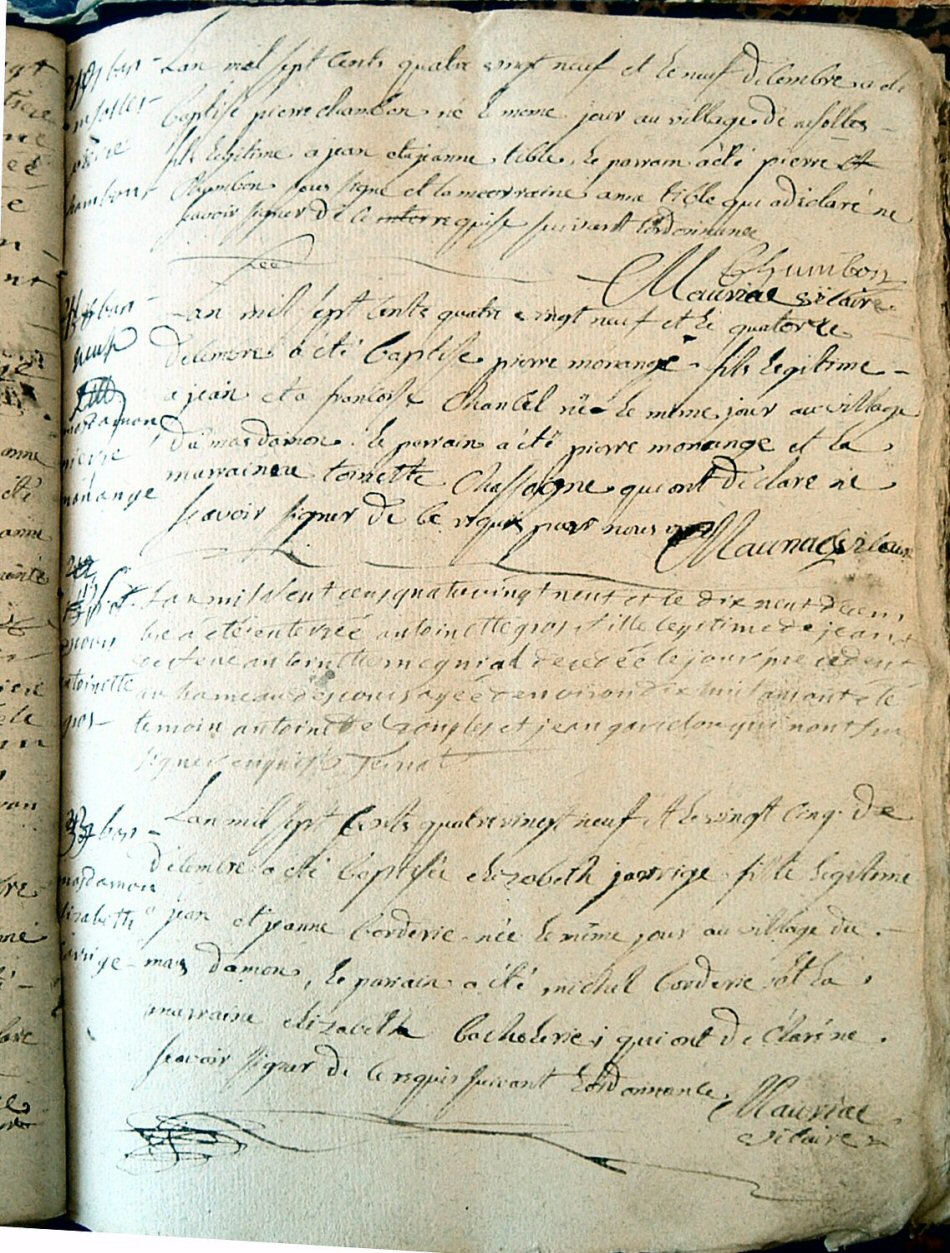 Lan mil sept cents quatre vingt neuf et le neuf decembre a ete
baptisé pierre chambon né le meme jour au village de
fils legitime a jean et a jeanne tible, le parrain a été pierre
Chambon sous signé et la marraine anne tible qui a déclaré ne
scavoir signer de ce requise suivant l'ordonnance
Chambon
Mauriac vicaire
Lan mil sept cents quatre vingt neuf et le quatorze
decembre a eté baptisé pierre morange fils legitime
a jean et a francoise Chantel né le meme jour au village
du mas damon. le parrain a été pierre morange et la
marraine toinette Chassaigne qui ont déclaré ne
scavoir signer de ce requis par nous
Mauriac vicaire
pierre
morange
Lan mil sept cens quatre vingt neuf et le dix neuf decem
bre a été enterrée antoinette gros fille legitime de jean et
de antoinette decedée le jour precedent
au hameau agée d'environ dix huit ans ont eté
temoin antoine et jean qui n'ont su
signer enquis
antoinette
gros
Lan mil sept cents quatre vingt neuf et le vingt cinq de
décembre a eté baptisée elizabeth jarrige fille legitime
a jean et jeanne borderie née le même jour au village du
mas damon, le parrain a été michel borderie et la
marraine elizabeth bachelerie qui ont déclaré ne
scavoir signer de ce requis suivant l'ordonnance
Mauriac
vicaire
masdamon
elizabeth
jarrige